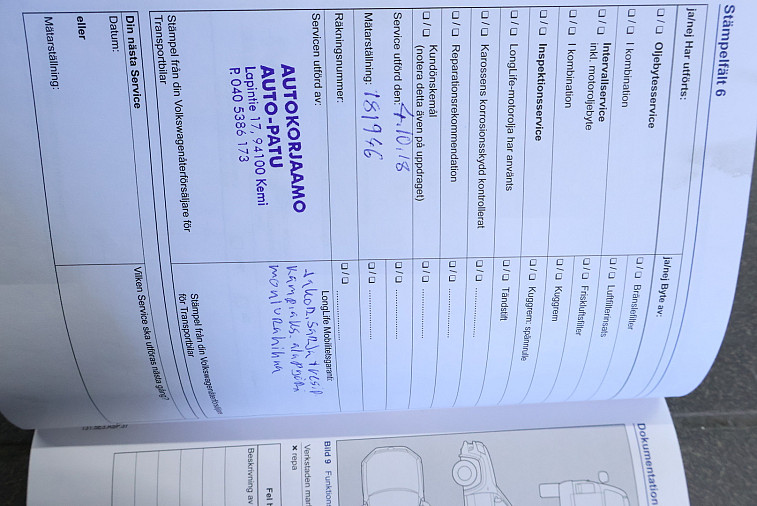 Stämpelfält 6
ja/nej Har utförts:
❏ / ❏ Oljebytesservice
❏ / ❏ I kombination
❏ / ❏ Intervallservice
inkl. motoroljebyte
❏ / ❏ I kombination
❏ / ❏ Inspektionsservice
❏ / ❏ LongLife-motorolja har använts
❏ / ❏ Karossens korrosionsskydd kontrollerat
❏ / ❏ Reparationsrekommendation
❏ / ❏ Kundönskemål
(notera detta även på uppdraget)
Service utförd den: 4.10.18
Mätarställning: 181946
Räkningsnummer:
ja/nej Byte av:
❏ / ❏ Bränslefilter
❏ / ❏ Luftfilterinsats
❏ / ❏ Friskluftsfilter
❏ / ❏ Kuggrem
❏ / ❏ Kuggrem: spännrulle
❏ / ❏ Tändstift
❏ / ❏ ................
❏ / ❏ ................
❏ / ❏ ................
❏ / ❏ ................
❏ / ❏ ................
❏ / ❏ ................
Servicen utförd av:
AUTOKORJAAMO
AUTO-PATU
Lapintie 17, 94100 Kemi
P. 040 5386 173
Stämpel från din Volkswagenåterförsäljare för
Transportbilar
LongLife Mobilitetsgaranti:
Stämpel från din Volkswagenåterförsäljare
för Transportbilar
Din nästa Service
Datum:
eller
Mätarställning:
Vilken Service ska utföras nästa gång?
Dokumentation
Bild 9 Funktions
Verkstaden mar
× repa
Beskrivning av
Fel h